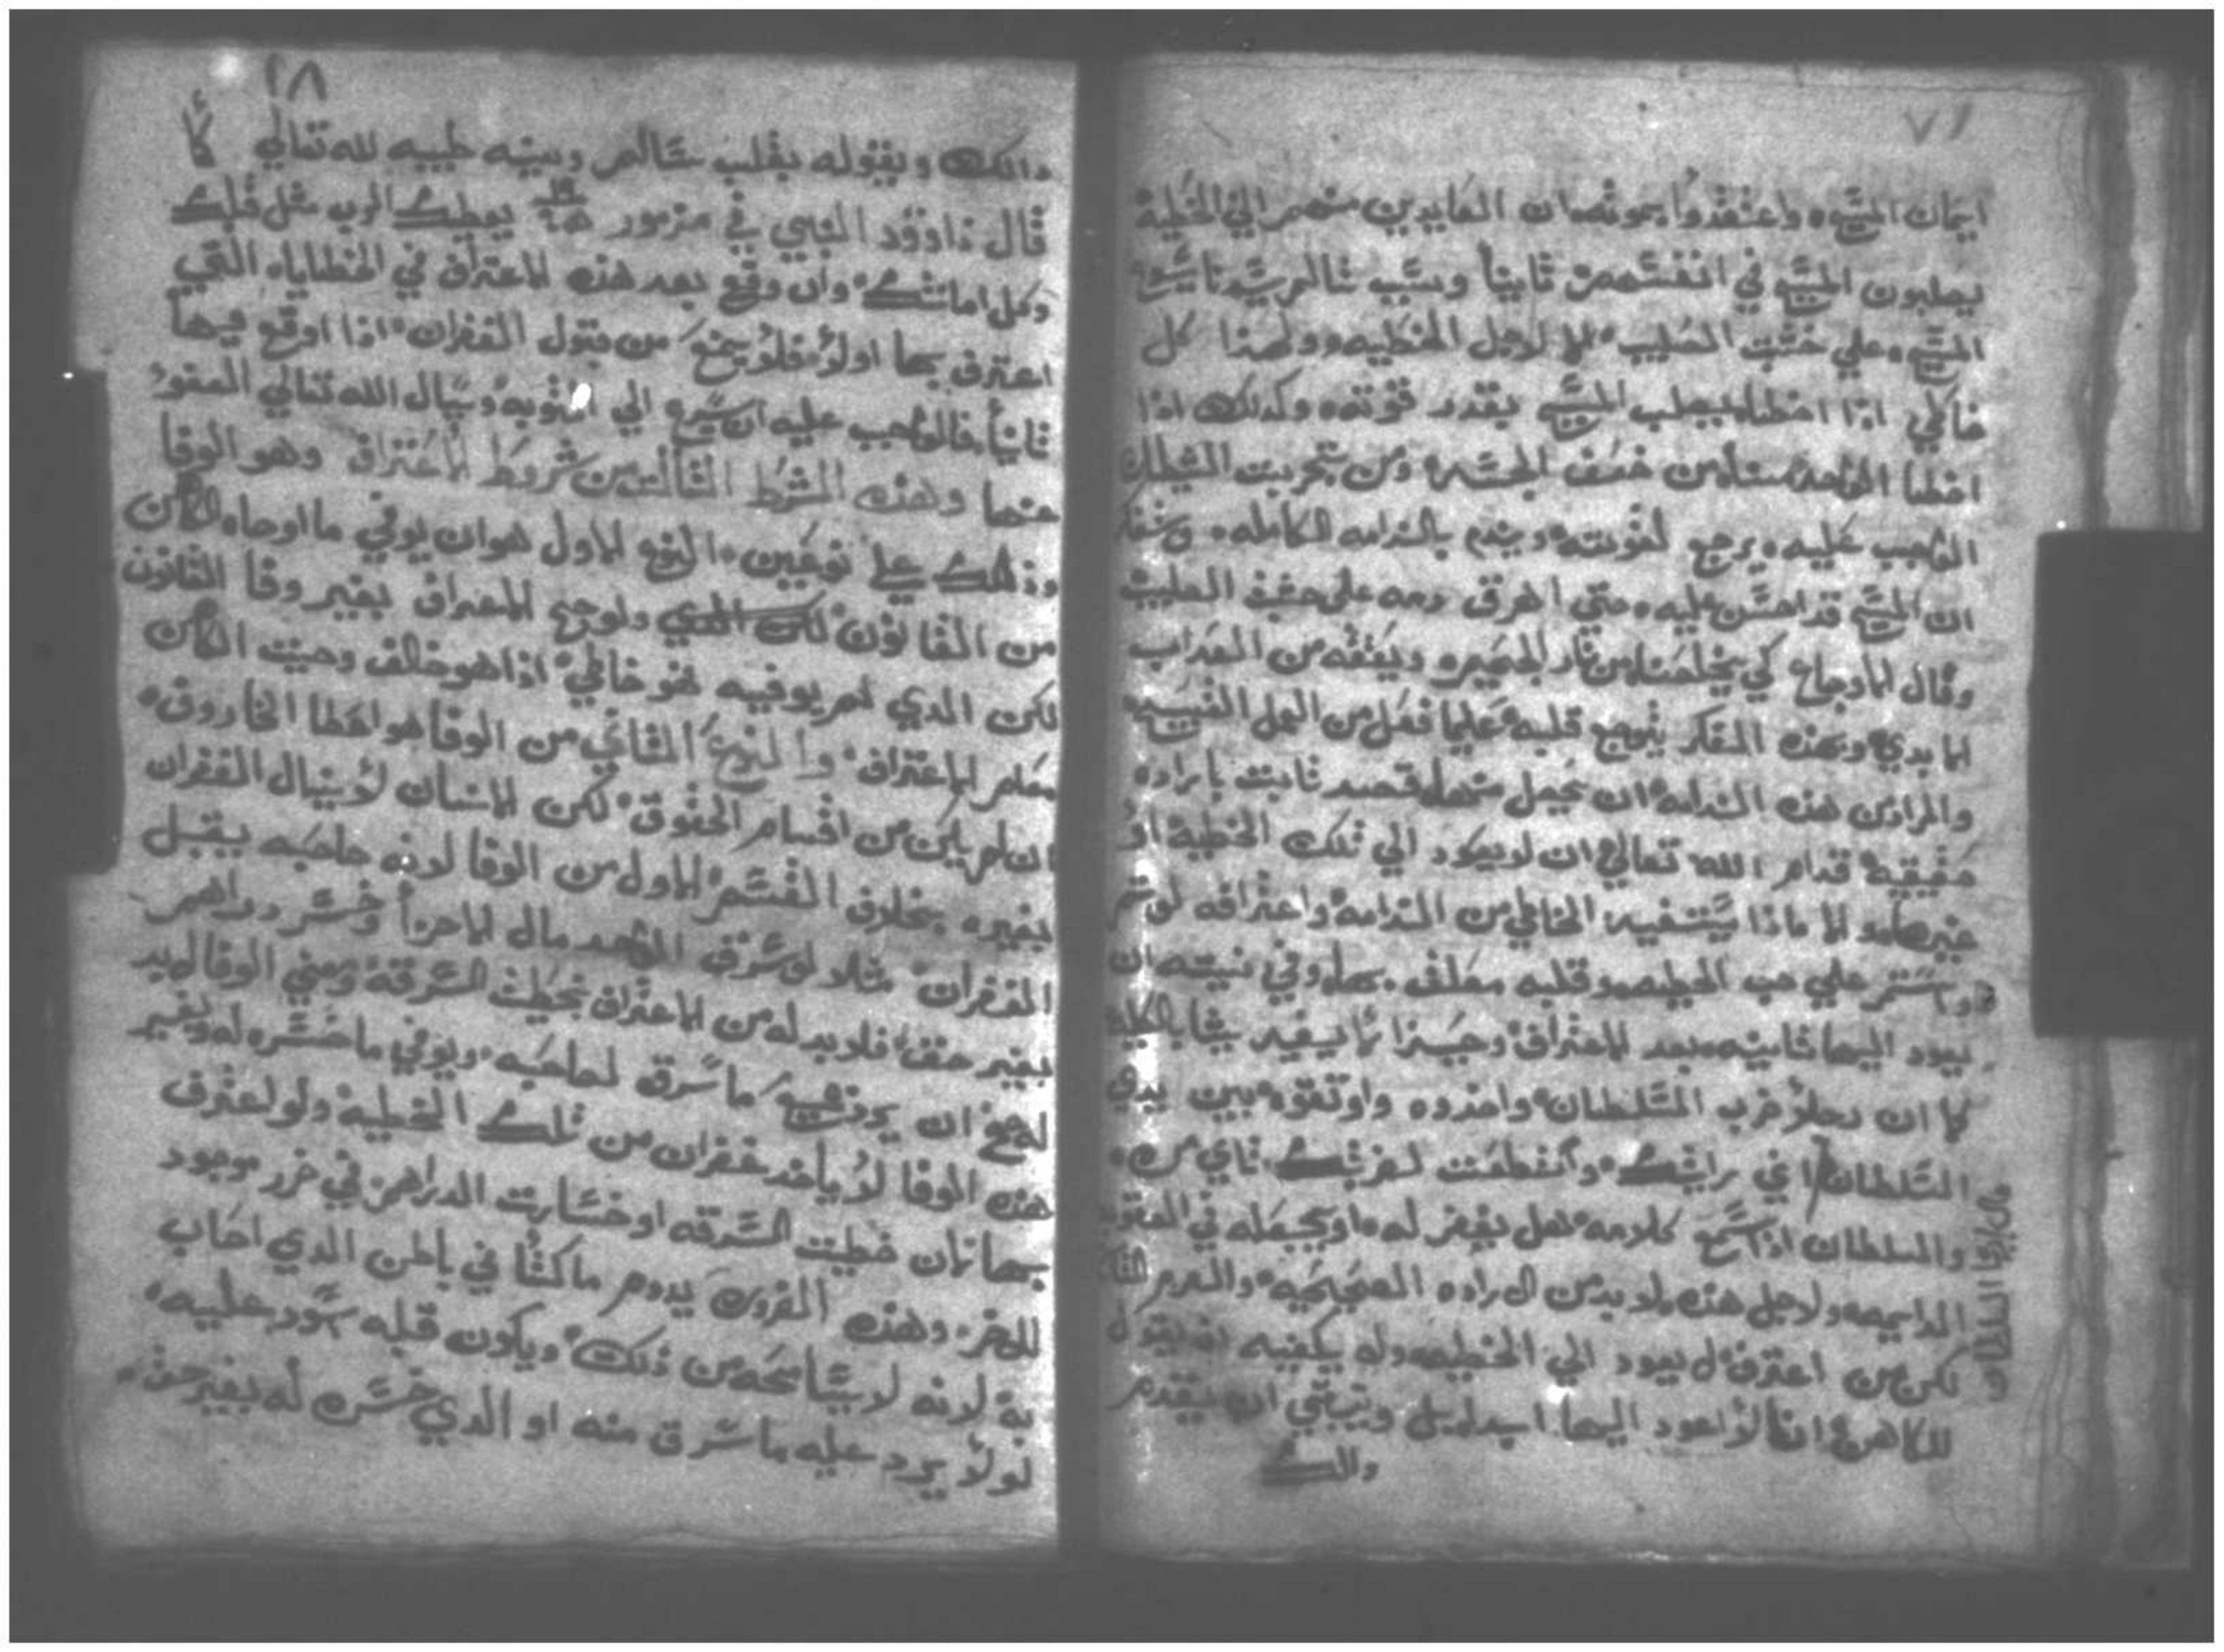 ٧١
ايمان المسيح واعتقدوا بموته ان العايدين منهم الي الخطية
يصلبون المسيح في انفسهم ثانيا وسبب تالم سيدنا يسوع
المسيح علي خشبت الصليب الا لاجل الخطيه ولهذا كل
خاطي اذا اخطا يصلب المسيح بقدر قوته وكدلك اذا
اخطا الواحد منا من ضعف الجسد ومن تجربت الشيطان
الواجب عليه يرجع لقوته ويندم بالندامه الكامله
ان المسيح قد احسن عليه حتي اهرق دمه علي خشبت الصليب
وقال الاوجاع كي يخلصنا من نار الجحيم ويعتقه من العداب
الابدي وبهذه الفكر يتوجع قلبه عليما فعل من العمل القبيح
والمراد من هذه الندامه ان يحمل قصد ثابت بارادة
حقيقية قدام الله تعالي ان لا يعود الي تلك الخطية او
غيرها والا ماذا يستفيد الخاطي من الندامه واعترافه لو تم
واستمر علي حب الخطيه وقلبه معلق بها وفي نيته ان
يعود اليها ثانيه بعد الاعتراف وحينذا لا يفيد شيا بالكلية
كما ان رجلا ضرب السلطان واخدوه واوقفوه بين يدي
السلطان اني ضربتك واتقطعت لضربتك تاني مره
والسلطان اذا سمع كلامه هل يغفر له او يجعله في العقوبة
الدايمه ولاجل هذه لا بد من الاراده الصحيحه والعزم
لكن من اعترف لا يعود الي الخطيه ولا يكفيه ان يقول
للكاهن انا لا اعود اليها ابدا بل وينبغي ان يقدم
والك
قال الي السلطان
٢٨
والك ويقوله بقلب سالم ونيته طيبه لله تعالي كما
قال داوود النبي في مزمور يعطيك الرب مثل قلبك
وكل امانتك وان وقع بعد هذه الاعتراف في الخطايا التي
اعترف بها اولا فلا يمنع من قبول الغفران اذا اوقع فيها
ثانيا فالواجب عليه ان يسرع الي التوبه ويسال الله تعالي العفو
عنها وهذه الشرط الثالث من شروط الاعتراف وهو الوفا
وذلك علي نوعين النوع الاول هو ان يوفي ما اوصاه الكاهن
من القانون ولو صح الاعتراف بغير وفا القانون
لكن الدي لم يوفيه هو خاطي اذا هو خالف وصيت الكاهن
معلم الاعتراف والنوع الثاني من الوفا هو اعطا الحقوق
ان لم يكن من اقسام الحقوق لكن الانسان لا ينال الغفران
بغيره بخلاف القسم الاول من الوفا لان صاحبه يقبل
الغفران مثلا لو سرق الواحد مال الاخر او خسر دراهم
بغير حق فلا بد له من الاعتراف بخطيت السرقة ومن الوفا لا بد
له ان يرد ما سرق لصاحبه ويوفي ما خسره له وبغير
هذه الوفا لا ياخد غفران من تلك الخطية ولو اعترف
بها لان خطيت السرقه او خسارت الدراهم في ضرر موجود
للاخر وهذه الضرر يدوم ماكثا في باطن الدي اصاب
به لانه لا يسامحه من ذلك ويكون قلبه سود عليه
لو لا يرد عليه ما سرق منه او الدي خسره له بغير حق